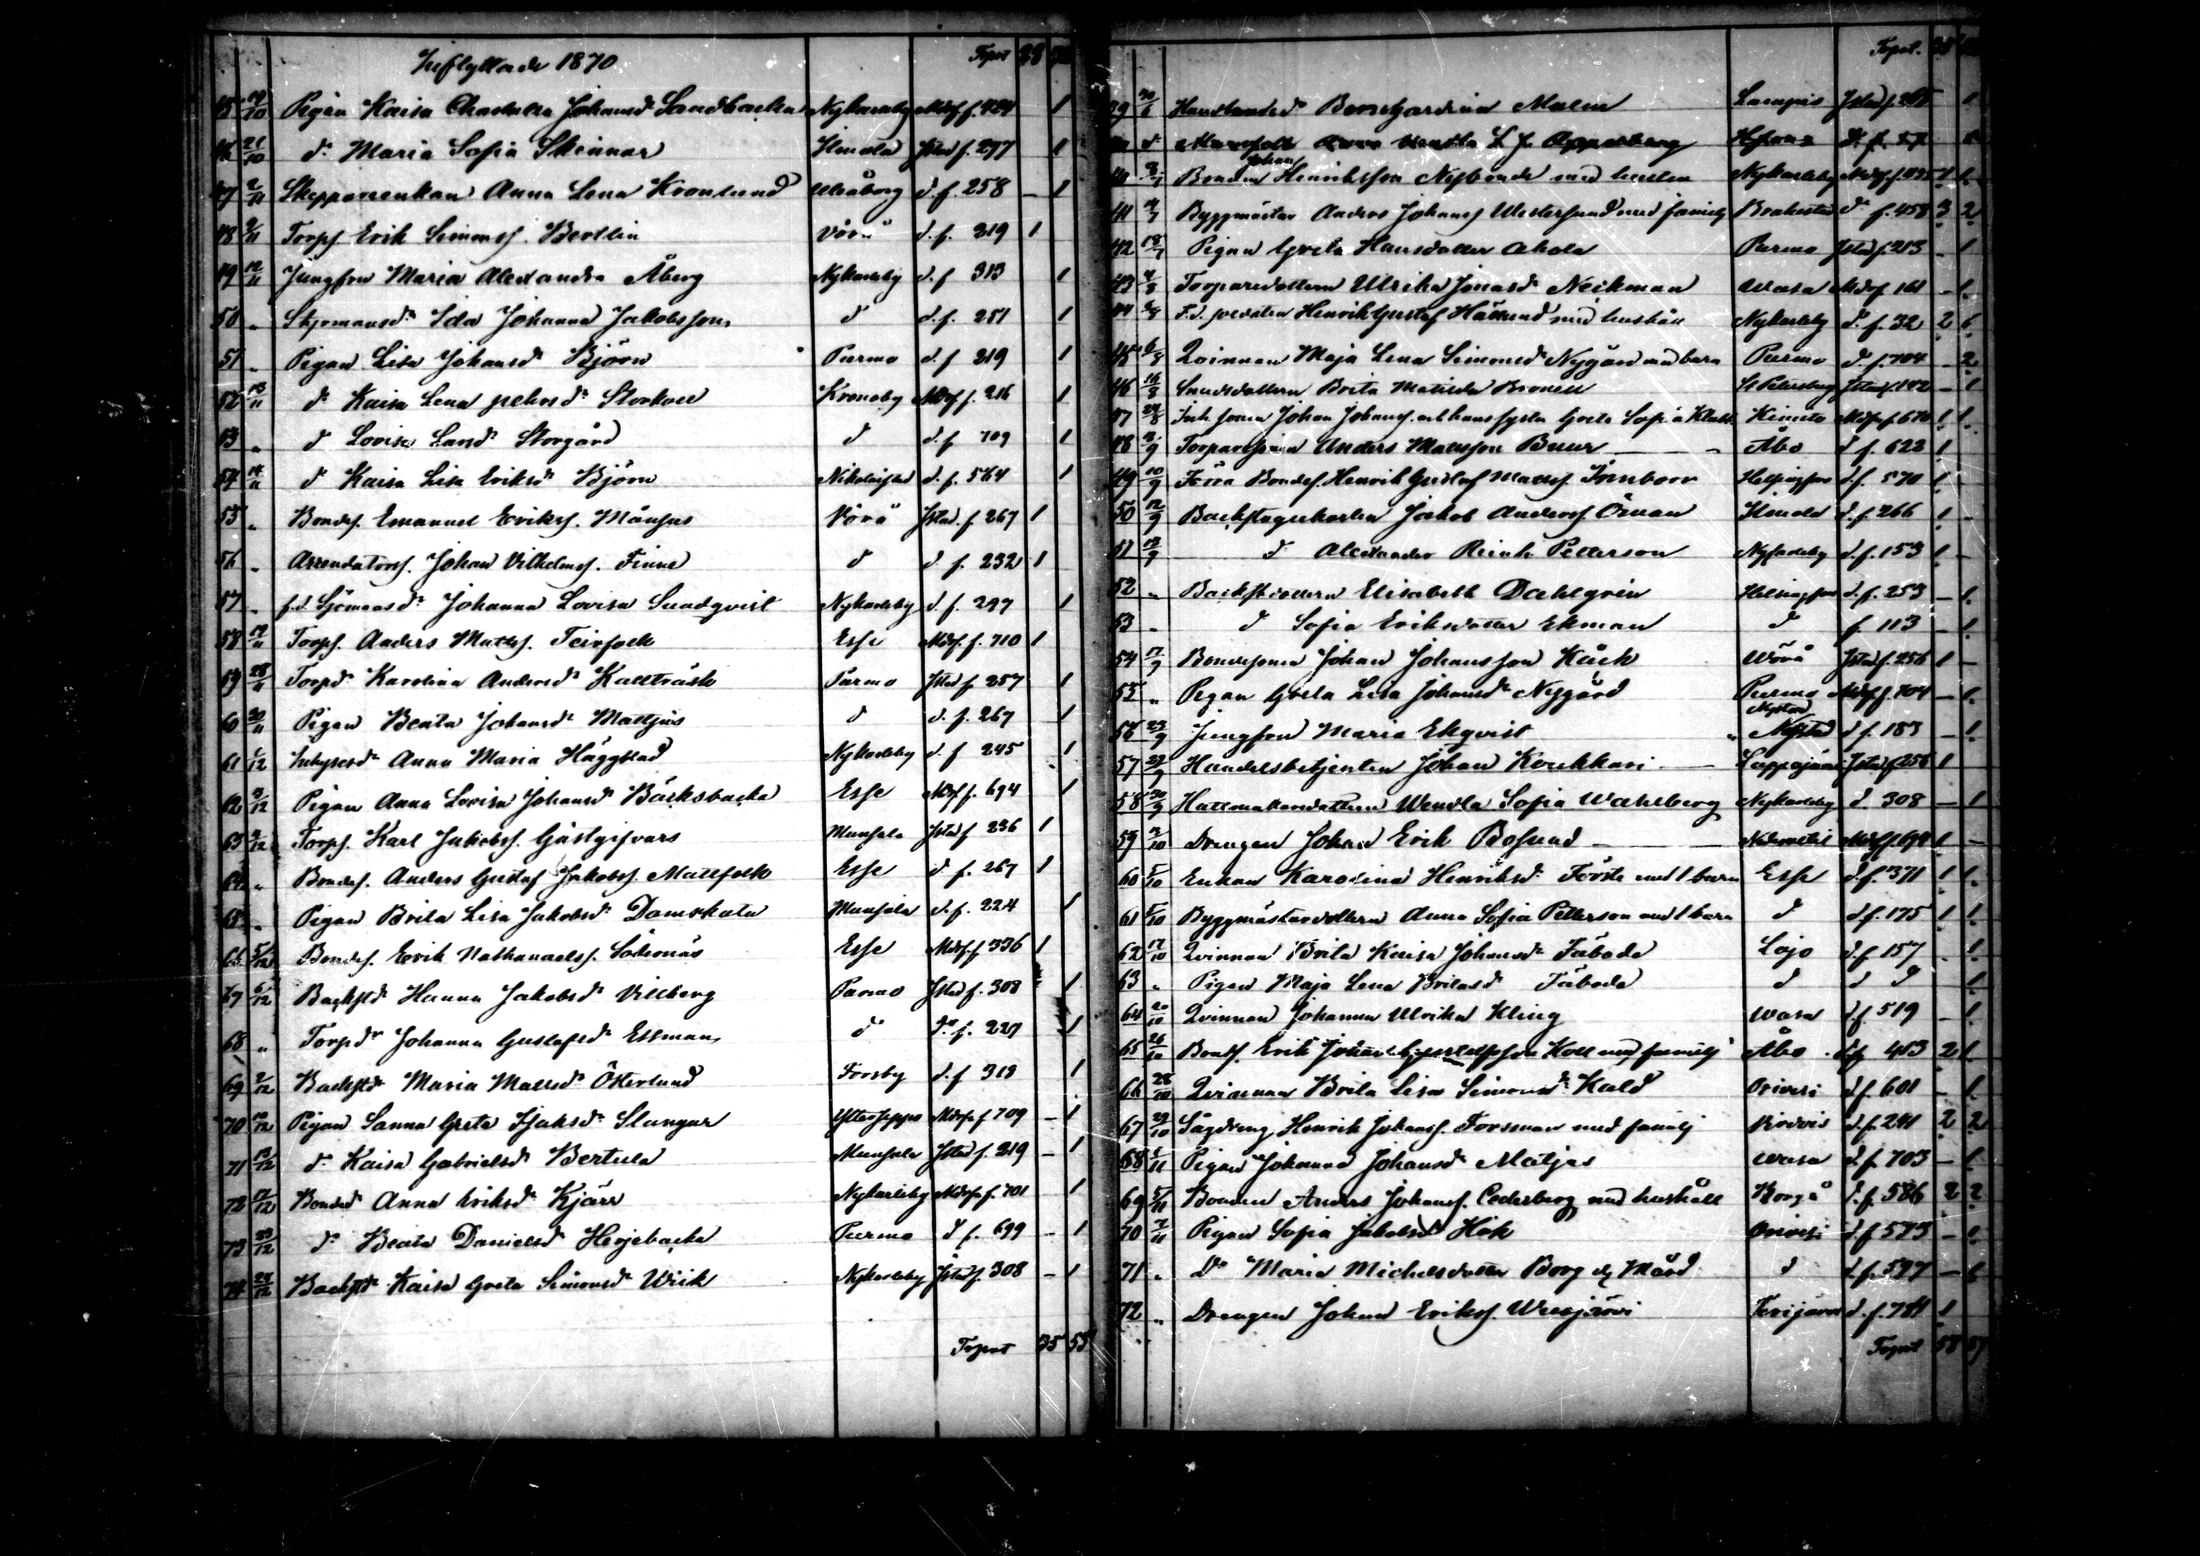 Inflyttade 1870
Tspt 28
45 14/10 Pigan Kaisa Charlotta Johansd. Sandbacka Nykarleby Mdsf. f. 424 1
46 21/10 d:o Maria Sofia Skinnar Ilmola Jstad f. 297 1
47 2/11 Skepparenkan Anna Lena Kronlund Uleåborg d. f. 258 – 1
48 9/11 Torpf. Erik Simonsf. Bertlin Vörå d. f. 219 1
49 12/11 Jungfrun Maria Alexandra Åberg Nykarleby d. f. 313 1
50 „ Styrmansd:r Ida Johanna Jakobsson d d. f. 251 1
51 „ Pigan Lisa Johansd:r Björn Purmo d. f. 219 1
52 13/11 d:o Kaisa Lena Petersd:r Storkall Kronoby Mdsf. f. 216 1
53 „ d Lovisa Larsd:r Storgård d d. f. 709 1
54 14/11 d Kaisa Lisa Eriksd:r Björn Nikolaistad d. f. 564 1
55 „ Bondes. Emanuel Eriksf. Månsus Vörå Jstad. f. 267 1
56 „ Arrendatorsf. Johan Vilhelmsf. Finne d d f. 232 1
57 „ f.d. Sjömansd:r Johanna Lovisa Sundqvist Nykarleby d. f. 297 1
58 19/11 Torpf. Anders Mattsf. Teirfolk Esse Mdsf. f. 710 1
59 28/11 Torpd:r Karolina Andersd:r Kallträsk Purmo Jstad f. 257 1
60 30/11 Pigan Beata Johansd:r Mattjus d d. f. 267 1
61 1/12 Inhysesd:r Anna Maria Häggblad Nykarleby d. f 245 1
62 2/12 Pigan Anna Lovisa Johansd. Bäcksbacka Esse Mdsf. f. 694 1
63 2/12 Torpf. Karl Jakobsf. Gästgifvars Munsala Jstad f 236 1
64 „ Bondef. Anders Gustaf Jakobsf. Mattfolk Esse d f. 267 1
65 „ Pigan Brita Lisa Jakobsd:r Damskata Munsala d. f. 224 1
66 5/12 Bondef. Erik Nathanaelsf. Södernäs Esse Mdsf. f 336 1
67 6/12 Backstd:r Hanna Jakobsd:r Villberg Purmo Jstad f. 308 1
68 „ Torpd:r Johanna Gustafsd:r Essman d d:o f. 227 1
69 9/12 Backstd:r Maria Mattsd:r Österlund Forsby d. f 313 1
70 12/12 Pigan Sanna Greta Isaksd:r Slangar Ytterjeppo Mdsf. f 709 – 1
71 13/12 d:o Kaisa Gabrielsd:r Bertula Munsala Jstad f. 219 – 1
72 17/12 Bonded Anna Eriksd:r Kjärr Nykarleby Mdsf. f. 701 1
73 23/12 d:o Beata Danielsd Herjebacka Purmo d f. 699 – 1
74 24/12 Backstd:r Kaisa Greta Simonsd:r Wiik Nykarleby Jstad f. 308 – 1
Tsport 35 53
Tsport. 38
39 30/6 Malin Lampis Jstad f. 1
d
40 2/7 Bonden Johan Henriksson Nybonde med hustru Nykarleby Mdsf. f. 1 1
41 4/7 Byggmästar Anders Johansf Westerlund med familj Brahestad d:o f. 458 3 2
42 18/7 Pigan Greta Hansdotter Ahola Purmo Jstad f. 213 – 1
43 4/8 Torparedottern Ulrika Jonasd:r Neikman Wasa Mdsf. 161 – 1
44 6/8 F.d. soldaten Henrik Gustaf Häklund med hushåll Nykarleby d. f. 32 2 6
45 6/8 Qvinnan Maja Lena Simonsd:r Nygård med barn Purmo d. f. 704 – 2
46 16/8 Smedsdottern Brita Matilda Bronell St Petersburg Jstad f. 142 – 1
47 24/8 Inh. sonen Johan Johansf. och hans syster Greta Sofia Klubb Kimito Mdsf. f. 670 1 1
48 2/9 Torparesonen Anders Mattsson Buur Åbo d f. 622 1
49 10/9 Förra Bondef. Henrik Gustaf Mattsf. Helsingfors d. f. 570 1
50 12/9 Backstugukarlen Jakob Andersf. Öman Ilmola d. f. 266 1
51 13/9 d Alexander Reinh. Petterson Nykarleby d. f. 153 1 –
52 „ Backstudottern Elisabeth Dahlgrén Helsingfors d. f. 253 – 1
53 „ d Sofia Eriksdotter Ekman d f. 113 – 1
54 17/9 Bondesonen Johan Johansson Käck Wörå Jstad f. 256 1 –
55 „ Pigan Greta Lisa Johansd:r Nygård Purmo Mdsf. f. 704 – 1
56 23/9 Jungfrun Maria Ekqvist Nystad Nystad d f. 183 – 1
57 29/9 Handelsbetjenten Johan Korkkari – Lappajärvi Jstad f. 256 1
58 30/9 Hattmakaredottern Wendla Sofia Wahlberg Nykarleby d. 308 – 1
59 2/10 Drengen Johan Erik Bosund – Nedervetil Mdsf. f. 694 1 –
60 5/10 Enkan Karolina Henriksd:r Förste med 1 barn Esse d. f. 371 1 1
61 5/10 Byggmästaredottern Anna Sofia Petterson med 1 barn d d. f. 175 1 1
62 17/10 Qvinnan Brita Kaisa Johansd:r Fäboda Lojo d. f 157 1
63 „ Pigan Maja Lena Britasd Fäboda d d d 1
64 20/10 Qvinnan Johanna Ulrika Kling Wasa d. f. 519 – 1
65 26/10 Bondf. Erik Johan Gustafsson Koll med familj Åbo d. f 413 2 1
66 28/10 Qvinnan Brita Lisa Simonsd:r Kald Orivesi d. f. 601 – 1
67 29/10 Sågdreng Henrik Johansf. Forsman med familj Virdois d. f. 241 2 2
68 1/11 Pigan Johanna Johansd:r Matjas Wasa d. f. 703 – 1
69 5/11 Bonden Anders Johansf. Cederberg med hushåll Borgå d. f. 586 2 2
70 7/11 Pigan Sofia Jakobsd. Hök Orivesi d. f 573 – 1
71 „ D:o Maria Michelsdotter Borg el. Mård d d. f. 577 – 1
72 „ Drengen Johan Eriksf. Wiesjärvi Terijärvi d. f. 781 1
Tsport 58 57